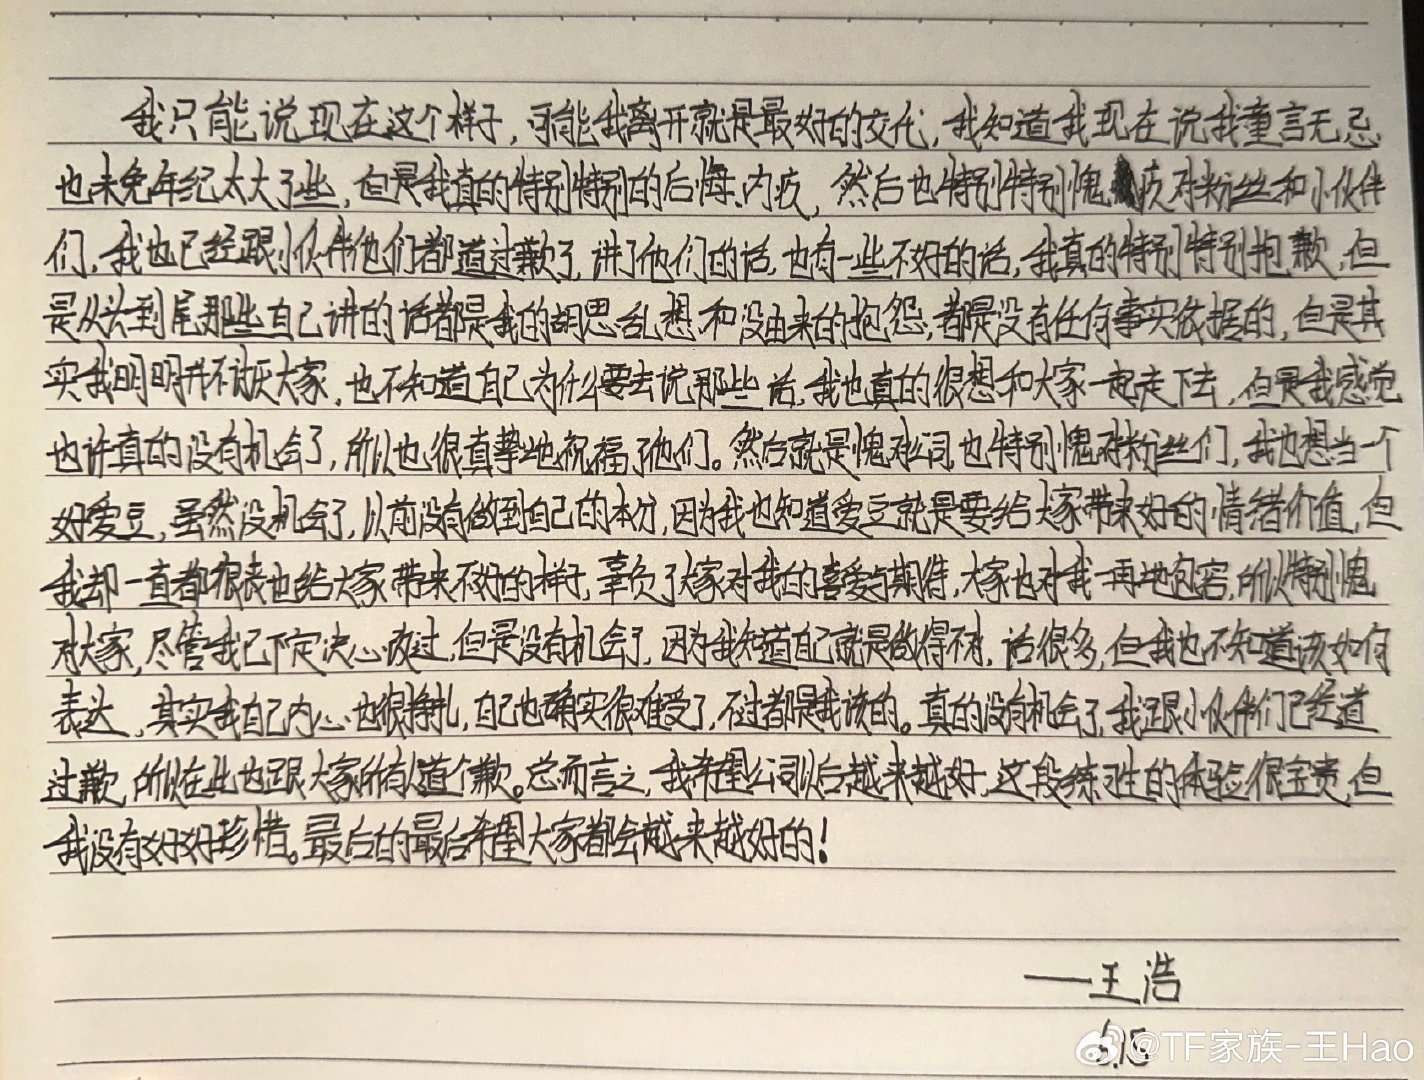 我只能说现在这个样子，可能我离开就是最好的交代，我知道我现在说我童言无忌
也未免年纪太大了些，但是我真的特别特别的后悔、内疚，然后也特别特别愧疚对粉丝和小伙伴
们，我也已经跟小伙伴他们都道过歉了，讲了他们的话，也有一些不好的话，我真的特别特别抱歉，但
是从头到尾那些自己讲的话都是我的胡思乱想和没由来的抱怨，都是没有任何事实依据的，但是其
实我明明并不讨厌大家，也不知道自己为什么要去说那些话，我也真的很想和大家一起走下去，但是我感觉
也许真的没有机会了，所以也很真挚地祝福了他们。然后就是愧对公司也特别愧对粉丝们，我也想当一个
好爱豆，虽然没机会了，以前没有做到自己的本分，因为我也知道爱豆就是要给大家带来好的情绪价值，但
我却一直都很表也给大家带来不好的样子，辜负了大家对我的喜爱与期待，大家也对我一再地包容，所以特别愧
对大家，尽管我已下定决心改过，但是没有机会了，因为我知道自己就是做得不对，话很多，但我也不知道该如何
表达，其实我自己内心也很挣扎，自己也确实很难受了，不过都是我该的。真的没有机会了，我跟小伙伴们已经道
过歉，所以在此也跟大家所有人道个歉。总而言之，我希望公司以后越来越好，这段练习生的体验很宝贵，但
我没有好好珍惜。最后的最后希望大家都会越来越好的！
——王浩
6.15
@TF家族-王Hao